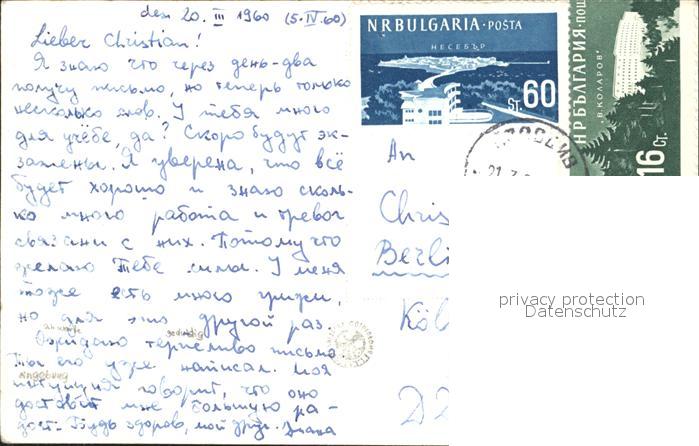 den 20. III 1960 (5.IV.60)
Lieber Christian!
Я знаю что через день-два
получу письмо, но теперь только
несколько слов. У тебя много
для учёбе, да? Скоро будут эк-
замены. Я уверена, что всё
будет хорошо и знаю сколь-
ко много работа и тревог
связани с них. Потому что
желаю тебе сила. У меня
тоже есть много грижи,
но для это другой раз.
Ожидаю терпеливо письмо
Ты его уже написал. Моя
интуиция говорит, что оно
доставит мне большую ра-
дост. Будь здоров, мой друг. Diana
geduldig
NRBULGARIA · POSTA
НЕСЕБЪР
St. 60
НР БЪЛГАРИЯ · ПОЩ
В. КОЛАРОВ
16 СТ.
21. 3
An
Chris
Berli
Köl
privacy protection
Datenschutz